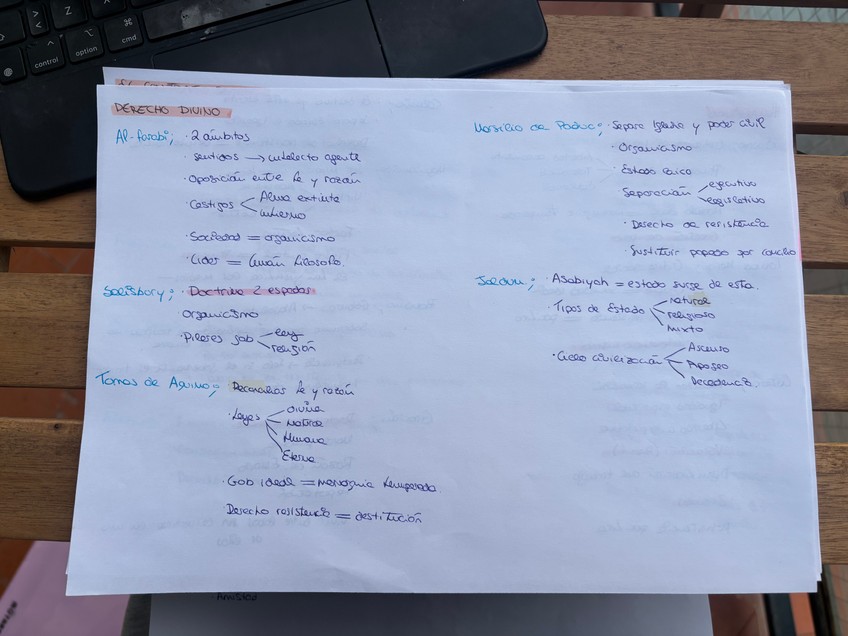 DERECHO DIVINO
Al-farabi; · 2 ámbitos
· sentidos → intelecto agente
· Oposición entre fe y razón
· Castigos < Alma extinta
infierno
· Sociedad = organicismo
· Líder = Imán filósofo.
Salisbury; · Doctrina 2 espadas
organicismo
· Pilares gob < ley
religión
Tomas de Aquino; Reconcilia fe y razón
· Leyes divina
natural
Humana
Eterna
· Gob ideal = monarquía temperada
Derecho resistencia = destitución
Marsilio de Padua; · Separa Iglesia y poder civil
· Organicismo
· Estado laico
· Separación < ejecutivo
legislativo
· Derecho de resistencia
· Sustituir papado por concilio
Jaldun; · Asabiyah = estado surge de esta.
· Tipos de Estado natural
religioso
mixto
· Ciclo civilización Ascenso
Apogeo
Decadencia.
control
option
cmd
Z
Amistad